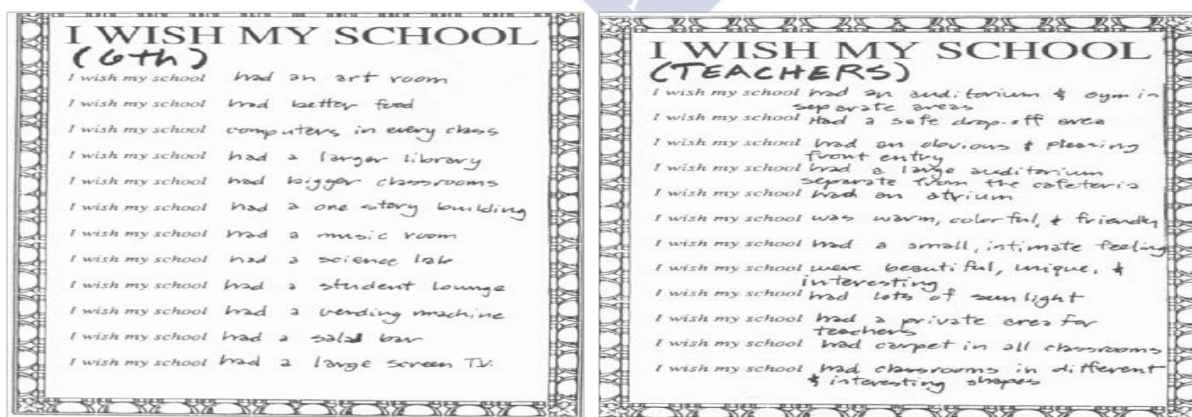 I WISH MY SCHOOL
(6th)
I wish my school had an art room
I wish my school had better food
I wish my school computers in every class
I wish my school had a larger library
I wish my school had bigger classrooms
I wish my school had a one story building
I wish my school had a music room
I wish my school had a science lab
I wish my school had a student lounge
I wish my school had a vending machine
I wish my school had a salad bar
I wish my school had a large screen TV.
I WISH MY SCHOOL
(TEACHERS)
I wish my school had an auditorium & gym in
separate areas
I wish my school Had a safe drop-off area
I wish my school had an obvious & pleasing
front entry
I wish my school had a large auditorium
separate from the cafeteria
I wish my school had an atrium
I wish my school was warm, colorful, & friendly
I wish my school had a small, intimate feeling
I wish my school were beautiful, unique, &
interesting
I wish my school had lots of sunlight
I wish my school had a private area for
teachers
I wish my school had carpet in all classrooms
I wish my school had classrooms in different
& interesting shapes